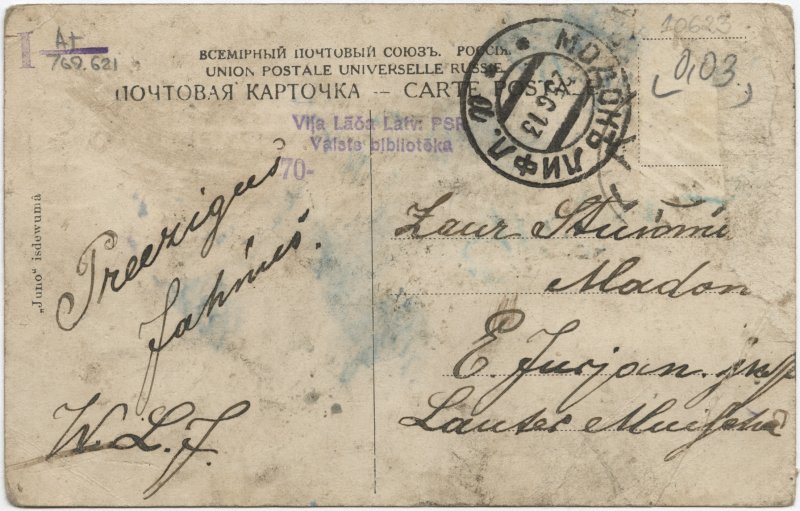 At
769.621
10623
0,03
ВСЕМІРНЫЙ ПОЧТОВЫЙ СОЮЗЪ. РОССІЯ.
UNION POSTALE UNIVERSELLE RUSSIE.
ПОЧТОВАЯ КАРТОЧКА — CARTE POSTALE
МОДОНЪ ЛИФЛ.
23 6 13
Viļa Lāča Latv. PSR
Valsts bibliotēka
70-
„Juno“ isdewumā
Preezigus
Jahņus.
W. L. J.
Zaur
Madon
E. Jurjan.
Lauter